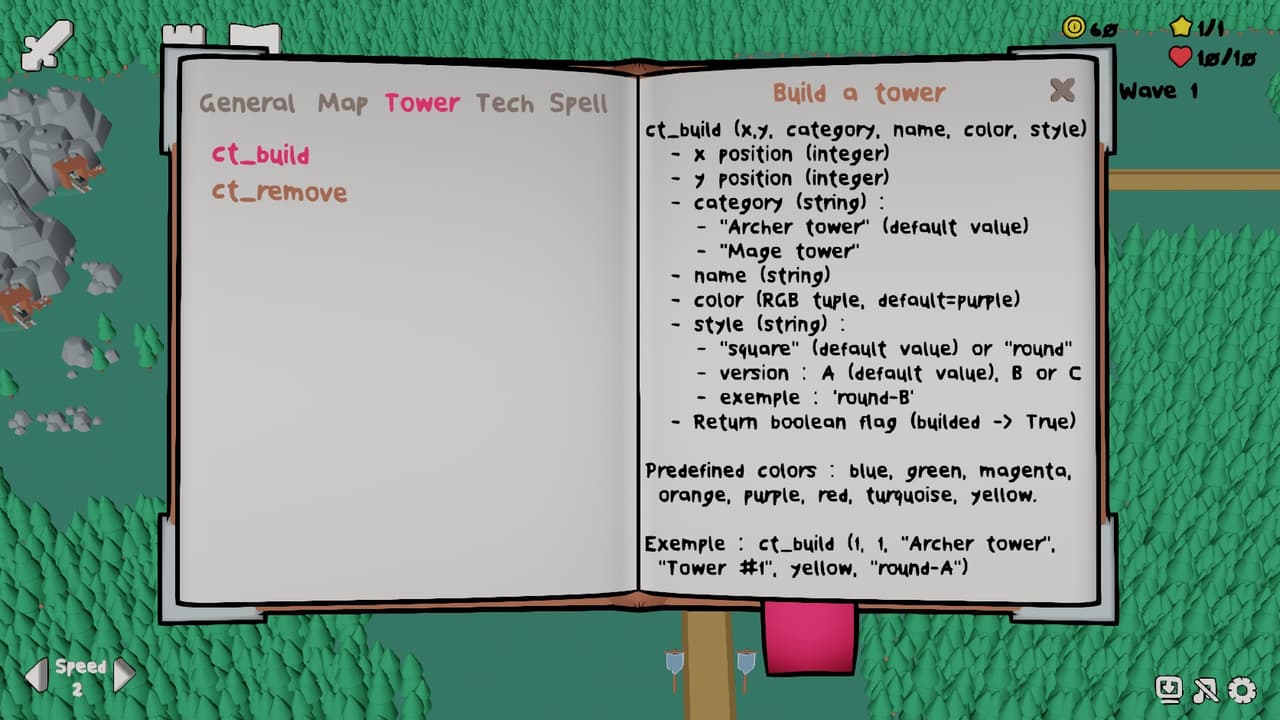 60
1/1
10/10
Wave 1
General Map Tower Tech Spell
ct_build
ct_remove
Build a tower
ct_build (x,y, category, name, color, style)
- x position (integer)
- y position (integer)
- category (string) :
- "Archer tower" (default value)
- "Mage tower"
- name (string)
- color (RGB tuple, default=purple)
- style (string) :
- "square" (default value) or "round"
- version : A (default value), B or C
- exemple : 'round-B'
- Return boolean flag (builded -> True)
Predefined colors : blue, green, magenta,
orange, purple, red, turquoise, yellow.
Exemple : ct_build (1, 1, "Archer tower",
"Tower #1", yellow, "round-A")
Speed
2